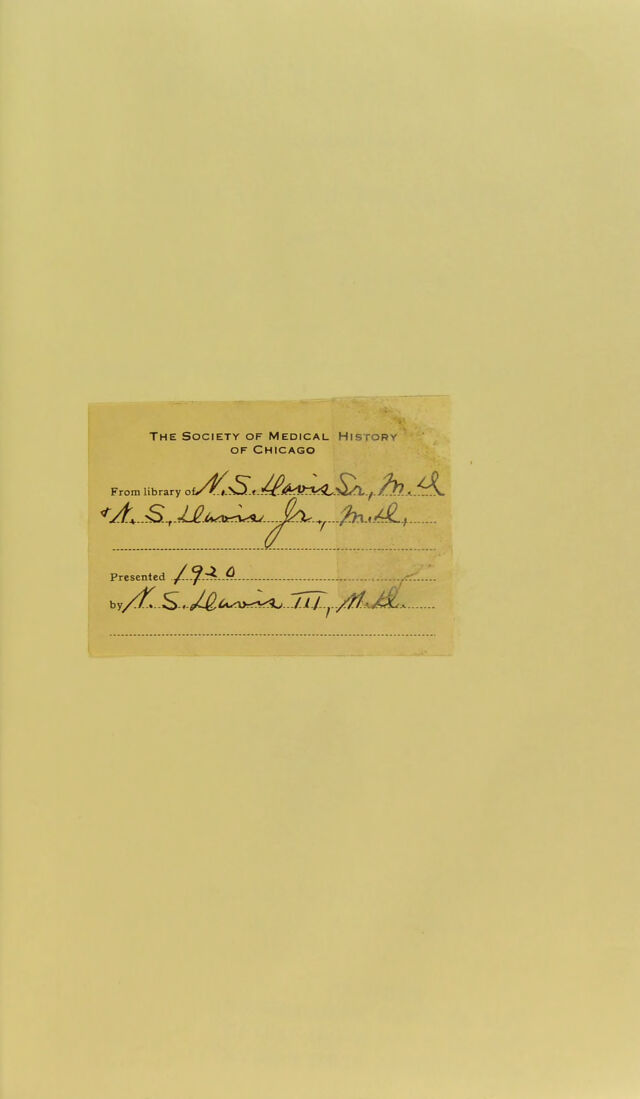 THE SOCIETY OF MEDICAL HISTORY
OF CHICAGO
From library of N. S. Davis Sr, M. D
& N. S, Davis Jr., M.D,
Presented 1920
by N. S. Davis III, M.D.